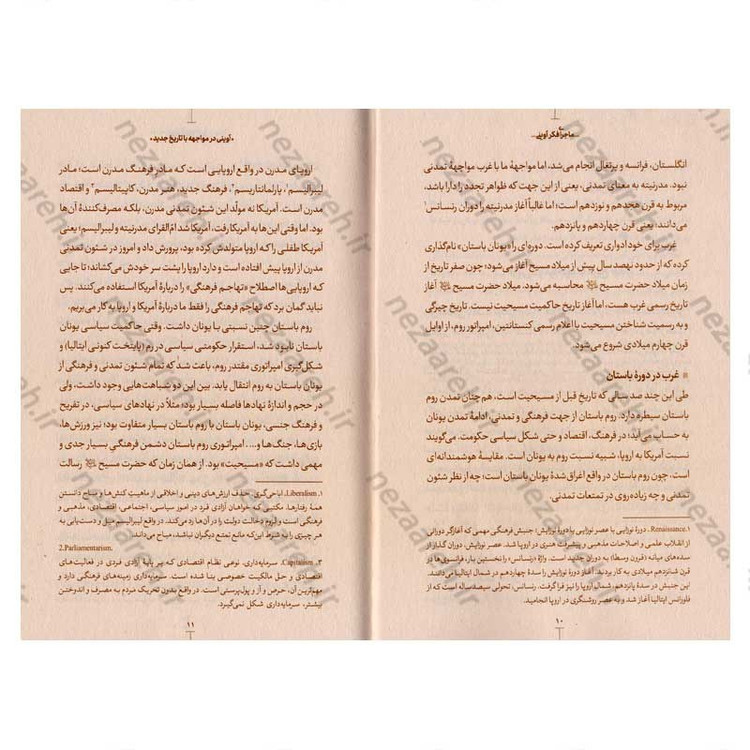 ماجرای فکر آوینی
انگلستان، فرانسه و پرتغال انجام می‌شد، اما مواجههٔ ما با غرب مواجههٔ تمدنی
نبود. مدرنیته به معنای تمدنی، یعنی از این جهت که ظواهر تجدد را دارا باشد،
مربوط به قرن هجدهم و نوزدهم است؛ اما غالباً آغاز مدرنیته را دوران رنسانس۱
می‌دانند؛ یعنی قرن چهاردهم و پانزدهم.
غرب برای خود ادواری تعریف کرده است. دوره‌ای را «یونان باستان» نام‌گذاری
کرده که از حدود نهصد سال پیش از میلاد مسیح آغاز می‌شود؛ چون صفر تاریخ از
زمان میلاد حضرت مسیح محاسبه می‌شود. میلاد حضرت مسیح آغاز
تاریخ رسمی غرب هست، اما آغاز تاریخ حاکمیت مسیحیت نیست. تاریخ چیرگی
و به رسمیت شناختن مسیحیت با اعلام رسمی کنستانتین، امپراتور روم، از اوایل
قرن چهارم میلادی شروع می‌شود.
غرب در دورهٔ باستان
طی این چند صد سالی که تاریخ قبل از مسیحیت است، هم‌چنان تمدن روم
باستان سیطره دارد. روم باستان از جهت فرهنگی و تمدنی، ادامهٔ تمدن یونان
به حساب می‌آید؛ در فرهنگ، اقتصاد و حتی شکل سیاسی حکومت. می‌گویند
نسبت آمریکا به اروپا، شبیه نسبت روم به یونان است. مقایسهٔ هوشمندانه‌ای
است، چون روم باستان در واقع اغراق شدهٔ یونان باستان است؛ چه از نظر شئون
تمدنی و چه زیاده روی در تمتعات تمدنی.
۱. Renaissance. دورهٔ نوزایی یا عصر نوزایش یا دورهٔ نوزایش؛ جنبش فرهنگی مهمی که آغازگر دورانی
از انقلاب علمی و اصلاحات مذهبی و پیشرفت هنری در اروپا شد. عصر نوزایش، دوران گذار از
سده‌های میانه (قرون وسطا) به دوران جدید است. واژهٔ «رنسانس» را نخستین بار، فرانسوی‌ها در
قرن شانزدهم میلادی به کار بردند. آغاز دورهٔ نوزایش را سدهٔ چهاردهم در شمال ایتالیا می‌دانند.
این جنبش در سدهٔ پانزدهم، شمال اروپا را نیز فرا گرفت. رنسانس، تحولی سیصدساله است که از
فلورانس ایتالیا آغاز شد و به عصر روشنگری در اروپا انجامید.
۱۰
• آوینی در مواجهه با تاریخ جدید •
اروپای مدرن در واقع اروپایی است که مادر فرهنگ مدرن است؛ مادر
لیبرالیسم۱، پارلمانتاریسم۲، فرهنگ جدید، هنر مدرن، کاپیتالیسم۳ و اقتصاد
مدرن است. آمریکا نه مولّد این شئون تمدنی مدرن، بلکه مصرف‌کنندهٔ آن‌ها
بود. اما وقتی این‌ها به آمریکا رفت، آمریکا شد ام‌القرای مدرنیته و لیبرالیسم؛ یعنی
آمریکا طفلی را که اروپا متولدش کرده بود، پرورش داد و امروز در شئون تمدنی
مدرن از اروپا پیش افتاده است و دارد اروپا را پشت سر خودش می‌کشاند؛ تا جایی
که اروپایی‌ها اصطلاح «تهاجم فرهنگی» را دربارهٔ آمریکا استفاده می‌کنند. پس
نباید گمان برد که تهاجم فرهنگی را فقط ما دربارهٔ آمریکا و اروپا به کار می‌بریم.
روم باستان چنین نسبتی با یونان داشت. وقتی حاکمیت سیاسی یونان
باستان نابود شد، استقرار حکومتی سیاسی در رم (پایتخت کنونی ایتالیا) و
شکل‌گیری امپراتوری مقتدر روم، باعث شد که تمام شئون تمدنی و فرهنگی از
یونان باستان به روم انتقال یابد. بین این دو شباهت‌هایی وجود داشت، ولی
در حجم و اندازهٔ نهادها فاصله بسیار بود؛ مثلاً در نهادهای سیاسی، در تفریح
و فرهنگ جنسی، یونان باستان با روم باستان بسیار متفاوت بود؛ نیز ورزش‌ها،
بازی‌ها، جنگ‌ها و.... امپراتوری روم باستان دشمن فرهنگی بسیار جدی و
مهمی داشت که «مسیحیت» بود. از همان زمان که حضرت مسیح رسالت
۱. Liberalism. اباحی‌گری. حذف ارزش‌های دینی و اخلاقی از ماهیت کنش‌ها و مباح دانستن
همهٔ رفتارها. مکتبی که خواهان آزادی فرد در امور سیاسی، اجتماعی، اقتصادی، مذهبی و
فرهنگی است و لزوم دخالت دولت را در آن‌ها رد می‌کند. در واقع لیبرالیسم میل و دست‌یابی به
هر چیزی را به شرط این‌که مانع تمتع دیگران نباشد، مباح می‌داند.
2.Parliamentarism.
۳. Capitalism. سرمایه‌داری. نوعی نظام اقتصادی که بر پایهٔ آزادی فردی در فعالیت‌های
اقتصادی و حق مالکیت خصوصی بنا شده است. سرمایه‌داری زمینه‌های فرهنگی دارد و
مهم‌ترین آن، حرص و آز و پول‌پرستی است. در واقع بدون تحریک مردم به مصرف و اندوختن
بیشتر، سرمایه‌داری شکل نمی‌گیرد.
۱۱
nezaareh.ir